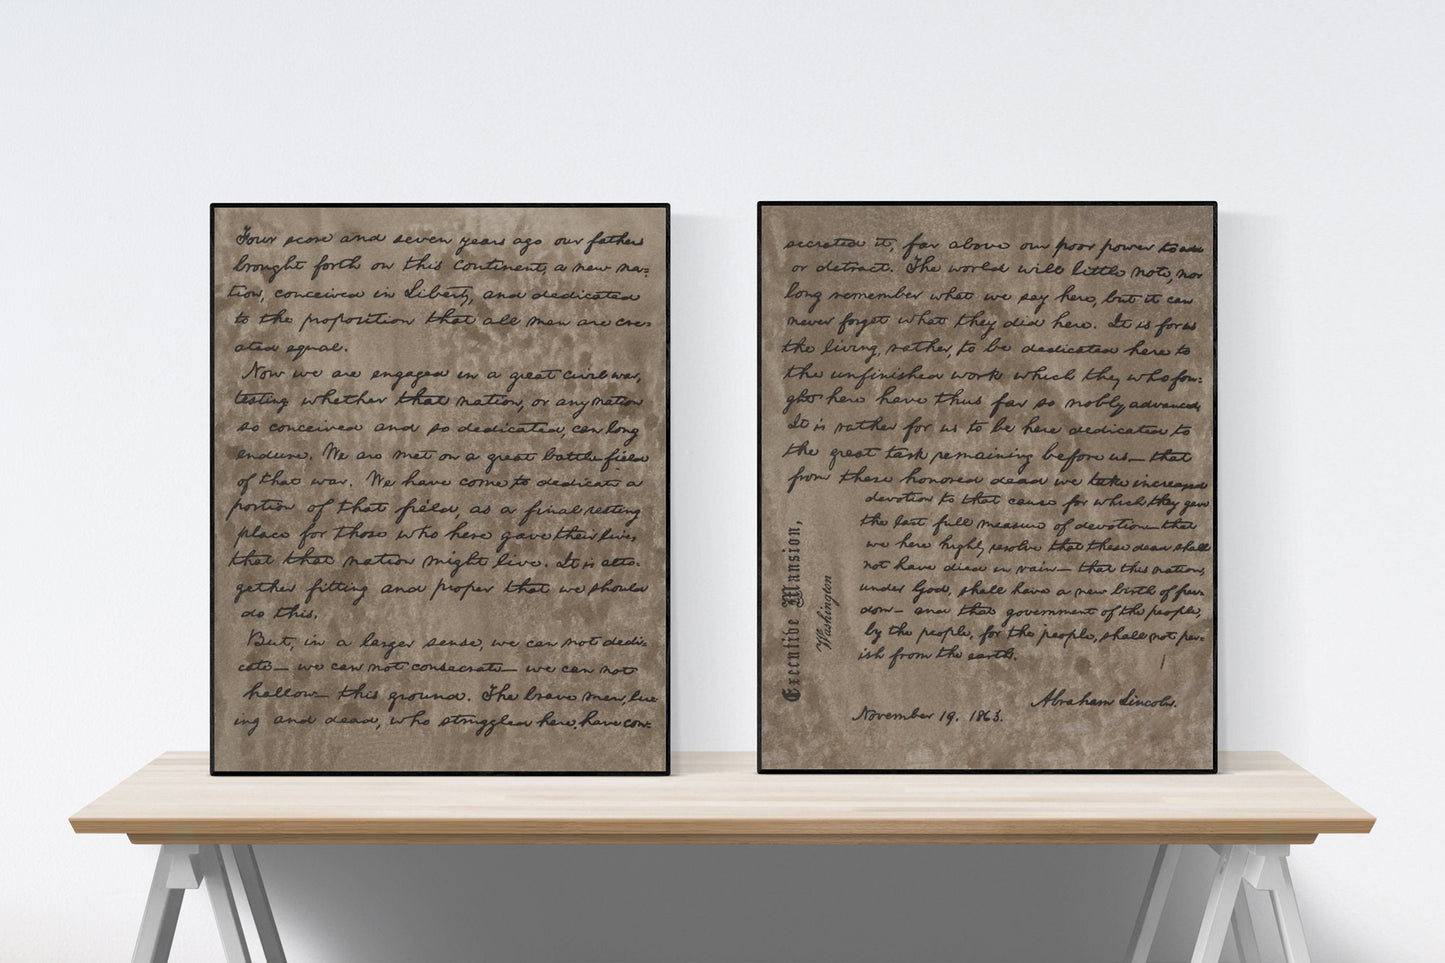 Four score and seven years ago our fathers
brought forth on this continent, a new na=
tion, conceived in Liberty, and dedicated
to the proposition that all men are cre=
ated equal.
Now we are engaged in a great civil war,
testing whether that nation, or any nation
so conceived and so dedicated, can long
endure. We are met on a great battle field
of that war. We have come to dedicate a
portion of that field, as a final resting
place for those who here gave their lives
that that nation might live. It is alto=
gether fitting and proper that we should
do this.
But, in a larger sense, we can not dedi=
cate— we can not consecrate— we can not
hallow— this ground. The brave men, liv=
ing and dead, who struggled here, have con=
secrated it, far above our poor power to add
or detract. The world will little note, nor
long remember what we say here, but it can
never forget what they did here. It is for us
the living, rather, to be dedicated here to
the unfinished work which they who fou=
ght here have thus far so nobly advanced.
It is rather for us to be here dedicated to
the great task remaining before us— that
from these honored dead we take increased
devotion to that cause for which they gave
the last full measure of devotion— that
we here highly resolve that these dead shall
not have died in vain— that this nation,
under God, shall have a new birth of free=
dom— and that government of the people,
by the people, for the people, shall not per=
ish from the earth.
Abraham Lincoln.
November 19. 1863.
Executive Mansion,
Washington